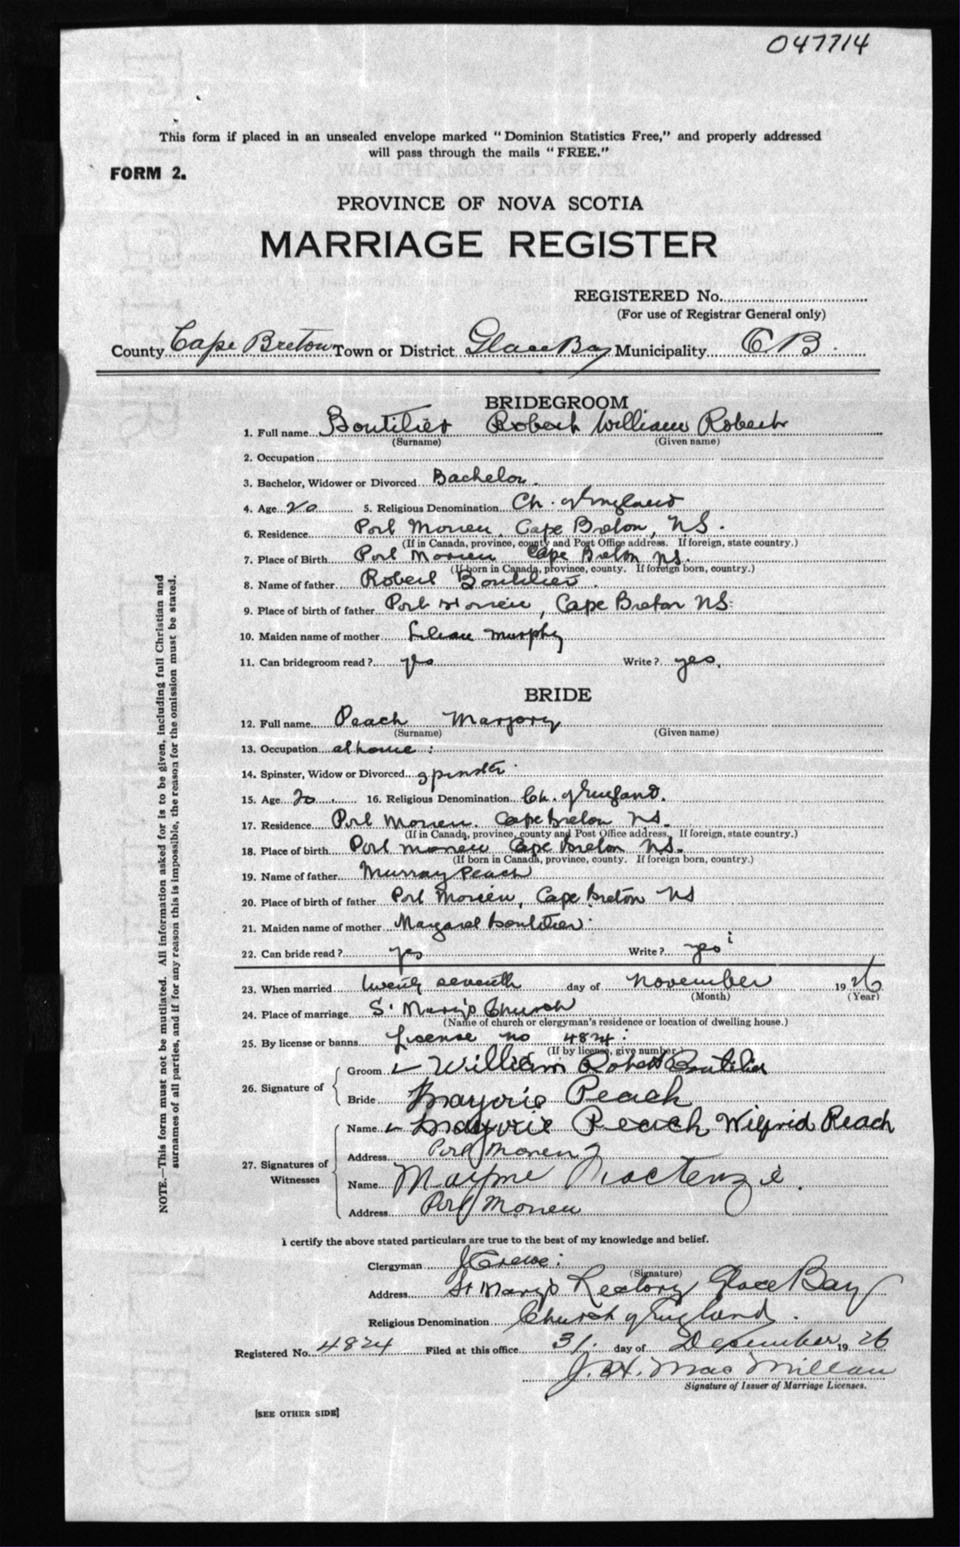 047714
This form if placed in an unsealed envelope marked "Dominion Statistics Free," and properly addressed
will pass through the mails "FREE."
FORM 2.
PROVINCE OF NOVA SCOTIA
MARRIAGE REGISTER
REGISTERED No.
(For use of Registrar General only)
County Cape Breton Town or District Glace Bay Municipality C.B.
BRIDEGROOM
1. Full name Boutilier Robert William Robert
(Surname) (Given name)
2. Occupation
3. Bachelor, Widower or Divorced Bachelor.
4. Age 20 5. Religious Denomination Ch. of England
6. Residence Port Morien, Cape Breton, N.S.
(If in Canada, province, county and Post Office address. If foreign, state country.)
7. Place of Birth Port Morien Cape Breton N.S.
(If born in Canada, province, county. If foreign born, country.)
8. Name of father Robert Boutilier
9. Place of birth of father Port Morien, Cape Breton N.S.
10. Maiden name of mother Lilian Murphy
11. Can bridegroom read? yes Write? yes.
BRIDE
12. Full name Peach Marjory
(Surname) (Given name)
13. Occupation at home.
14. Spinster, Widow or Divorced spinster
15. Age 20 16. Religious Denomination Ch. of England.
17. Residence Port Morien. Cape Breton N.S.
(If in Canada, province, county and Post Office address. If foreign, state country.)
18. Place of birth Port Morien Cape Breton N.S.
(If born in Canada, province, county. If foreign born, country.)
19. Name of father Murray Peach
20. Place of birth of father Port Morien, Cape Breton N.S
21. Maiden name of mother Margaret Boutilier
22. Can bride read? yes Write? yes
23. When married twenty seventh day of November 1926
(Month) (Year)
24. Place of marriage St Mary's Church
(Name of church or clergyman's residence or location of dwelling house.)
25. By license or banns License no 4824.
(If by license, give number)
26. Signature of
Groom William Robert Boutilier
Bride Marjorie Peach
27. Signatures of Witnesses
Name Marjorie Peach Wilfrid Peach
Address Port Morien
Name Mayme MacKenzie.
Address Port Morien
I certify the above stated particulars are true to the best of my knowledge and belief.
Clergyman
(Signature)
Address St Mary's Rectory Glace Bay
Religious Denomination Church of England.
Registered No. 4824 Filed at this office 31. day of December 1926
J. H. MacMillan
Signature of Issuer of Marriage Licenses.
[SEE OTHER SIDE]
NOTE.—This form must not be mutilated. All information asked for is to be given, including full Christian and
surnames of all parties, and if for any reason this is impossible, the reason for the omission must be stated.